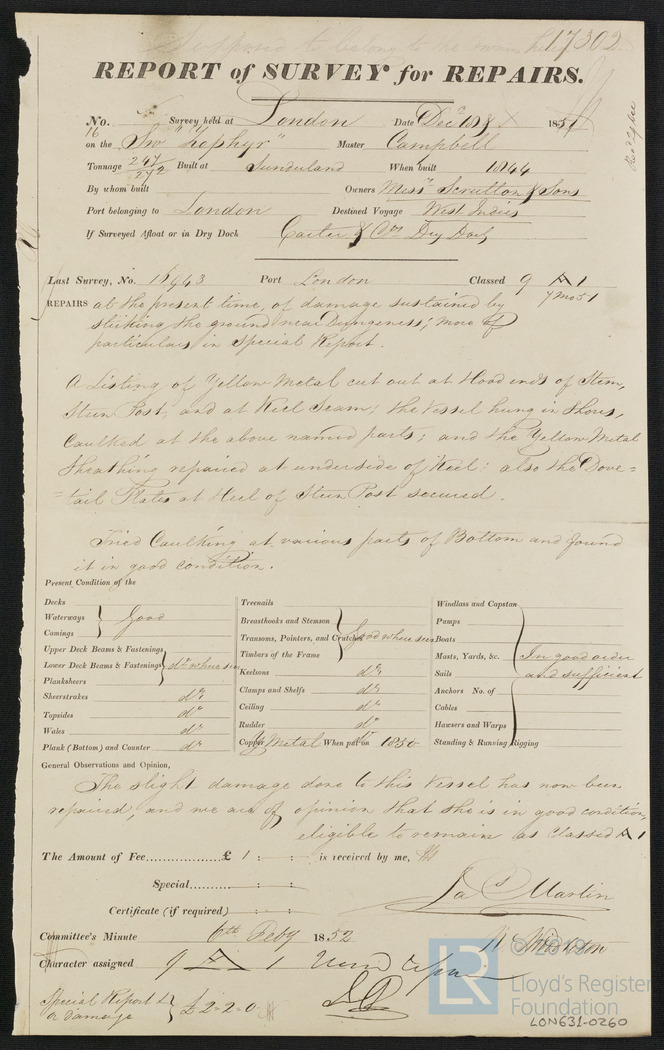 Supposed to belong to the
17302
REPORT of SURVEY for REPAIRS.
No. Survey held at London Date Decr 1851
16
on the Sw "Zephyr" Master Campbell
Tonnage 247/272 Built at Sunderland When built 1844
By whom built Owners Messrs Scrutton & Sons
Port belonging to London Destined Voyage West Indies
If Surveyed Afloat or in Dry Dock Carter & Cos Dry Dock
Last Survey, No. 16443 Port London Classed 9 A 1
7 Mo 51
REPAIRS at the present time, of damage sustained by
striking the ground near Dungeness; more of
particulars in Special Report.
A Listing of Yellow Metal cut out at Hood ends of Stem,
Stern Post, and at Keel Seam; the Vessel hung in Shores,
Caulked at the above named parts; and the Yellow Metal
Sheathing repaired at underside of Keel: also the Dove=
=tail Plates at Heel of Stern Post secured.
Tried Caulking at various parts of Bottom and found
it in good condition.
Present Condition of the
Decks
Waterways } Good
Comings
Upper Deck Beams & Fastenings
Lower Deck Beams & Fastenings } do where seen
Planksheers
Sheerstrakes do
Topsides do
Wales do
Plank (Bottom) and Counter do
Treenails
Breasthooks and Stemson
Transoms, Pointers, and Crutches } Good where seen
Timbers of the Frame
Keelsons do
Clamps and Shelfs do
Ceiling do
Rudder do
Copper Y Metal When put on 1850
Windlass and Capstan
Pumps
Boats
Masts, Yards, &c. } In good order
Sails and sufficient
Anchors No. of
Cables
Hawsers and Warps
Standing & Running Rigging
General Observations and Opinion,
The slight damage done to this Vessel has now been
repaired, and we are of opinion that she is in good condition,
eligible to remain as Classed A 1
The Amount of Fee............... £ 1 : : is received by me,
Special............ : :
Certificate (if required) : :
Jas Martin
Committee's Minute 6th Feby 1852
Character assigned 9 A 1
Special Report &
or damage } £2-2-0
LR
© 2018
Lloyd's Register
Foundation
LON631-0260